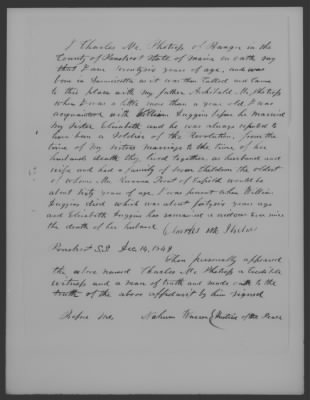 I Charles Mc Phetres of Bangor in the
County of Penobscot State of Maine on oath say
that I am seventy six years of age, and was
born in as it was then called and came
to this place with my father Archibald Mc Phetres
when I was a little more than a year old, I was
acquainted with William Inggins before he married
my sister Elizabeth and he was always reputed to
have been a soldier of the Revolution, from the
time of my sisters marriage to the time of her
husbands death they lived together as husband and
wife and had a family of children the oldest
of whom Mrs of Enfield would be
about sixty years of age, I was present when William
Inggins died which was about forty six years ago
and Elizabeth Inggins has remained a widow ever since
the death of her husband Charles Mc Phetres
Penobscot S.S. Dec 14, 1849
Then personally appeared
the above named Charles Mc Phetres a credible
witness and a man of truth and made oath to the
truth of the above affidavit by him signed
Before me, Nahum Justice of the Peace